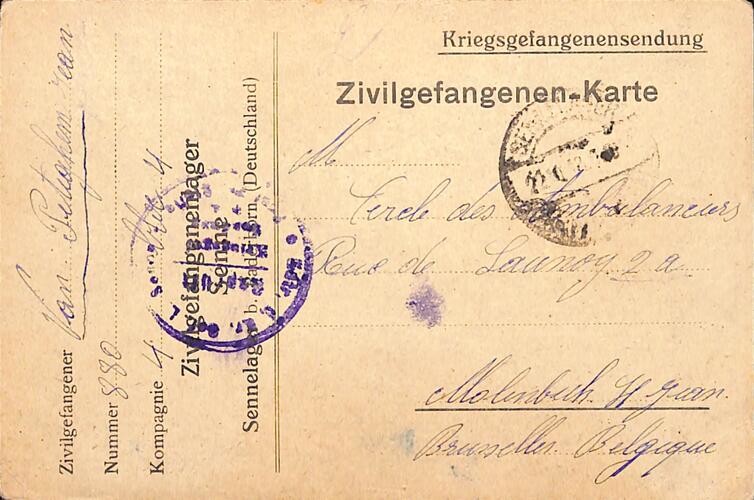 Kriegsgefangenensendung
Zivilgefangenen-Karte
M
Cercle des Ambulanciers
Rue de Launoy 2a
Molenbeek St Jean
Bruxelles Belgique
Zivilgefangener Van Puteghem Jean
Nummer 880
Kompagnie 4 4
Zivilgefangenenlager
Senne
Sennelager b. Paderborn, (Deutschland)